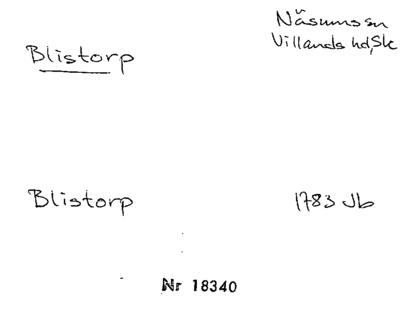 Näsums sn
Villands hd, Sk
Blistorp
Blistorp
1783 Jb
Nr 18340